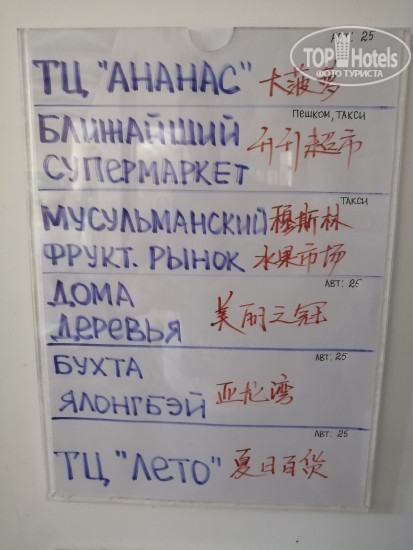 TOP Hotels
ФОТО ТУРИСТА
АВТ. 25
ТЦ "АНАНАС" 大菠萝
ПЕШКОМ, ТАКСИ
БЛИЖАЙШИЙ
СУПЕРМАРКЕТ 超市
ТАКСИ
МУСУЛЬМАНСКИЙ 穆斯林
ФРУКТ. РЫНОК 水果市场
АВТ: 25
ДОМА
ДЕРЕВЬЯ 美丽之冠
АВТ: 25
БУХТА
ЯЛОНГБЭЙ 亚龙湾
АВТ: 25
ТЦ "ЛЕТО" 夏日百货